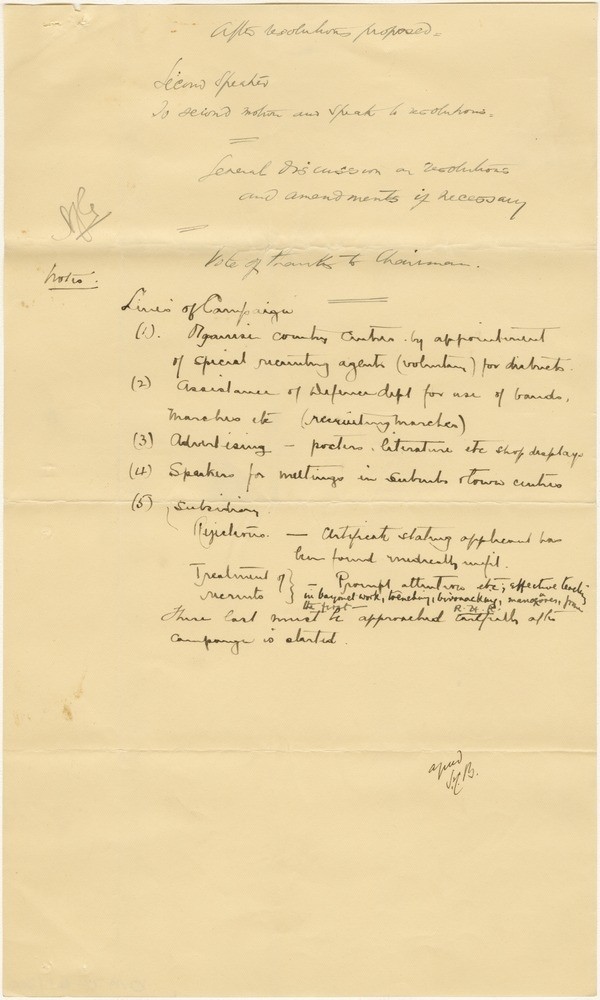 After resolutions proposed =
Second Speaker
To second motion and speak to resolutions.
General discussion on resolutions
and amendments if necessary
Vote of thanks to Chairman.
Notes.
Lines of Campaign
(1). Organise country centres by appointment
of special recruiting agents (voluntary) for districts.
(2) Assistance of Defence dept for use of bands,
marches etc (recruiting marches)
(3) Advertising — posters, literature etc shop displays
(4) Speakers for meetings in suburbs & town centres
(5) Subsidiary.
Rejections. — Certificate stating applicant has
been found medically unfit.
Treatment of recruits } — Prompt attention etc; effective teaching
in bayonet work, trenching, bivouacking, manoeuvres, from
the first —
These last must be approached carefully after
campaign is started.